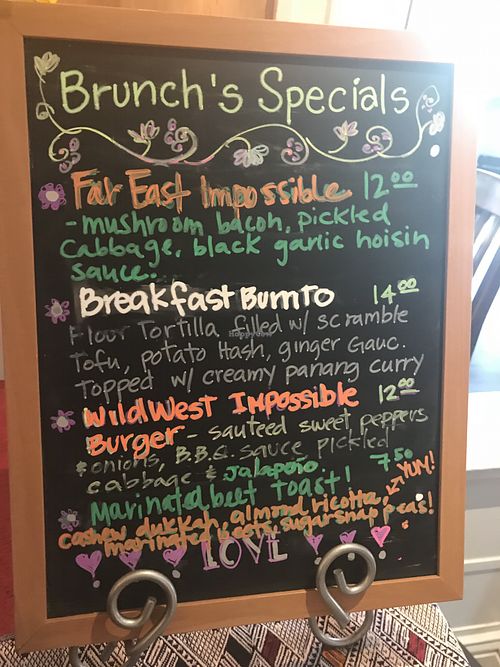 Brunch's Specials
Far East Impossible 12.00
- mushroom bacon, pickled
cabbage, black garlic hoisin
sauce.
Breakfast Burrito 14.00
Flour Tortilla filled w/ scramble
Tofu, potato Hash, ginger Gauc.
Topped w/ creamy panang curry
Wild West Impossible 12.00
Burger - sauteed sweet peppers
& onions, B.B.Q sauce pickled
cabbage & Jalapeño. 7.50
Marinated beet Toast! YUM!
cashew dukkah, almond ricotta,
marinated beets, sugar snap peas!
LOVE